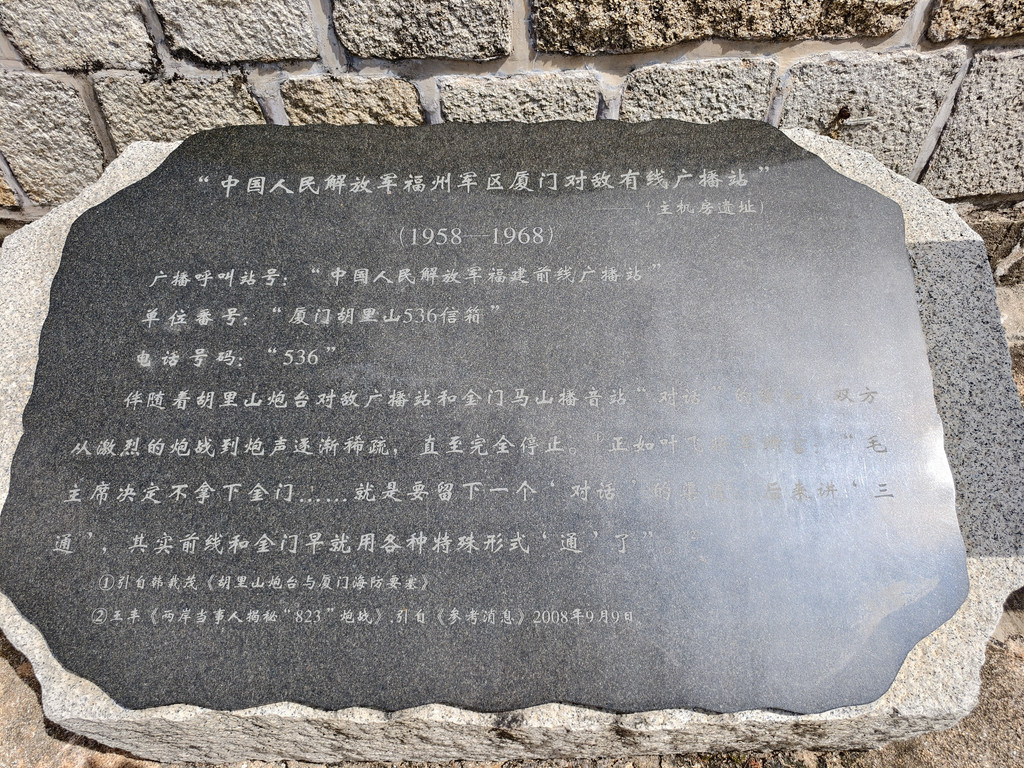 “中国人民解放军福州军区厦门对敌有线广播站”
——（主机房遗址）
（1958—1968）
广播呼叫站号：“中国人民解放军福建前线广播站”
单位番号：“厦门胡里山536信箱”
电话号码：“536”
伴随着胡里山炮台对敌广播站和金门马山播音站“对话”的 双方
从激烈的炮战到炮声逐渐稀疏，直至完全停止。 正如叶飞 “毛
主席决定不拿下金门……就是要留下一个‘对话’的 后来讲‘三
通’，其实前线和金门早就用各种特殊形式‘通’了”
①引自韩栽茂《胡里山炮台与厦门海防要塞》
②王丰《两岸当事人揭秘“823”炮战》,引自《参考消息》2008年9月9日